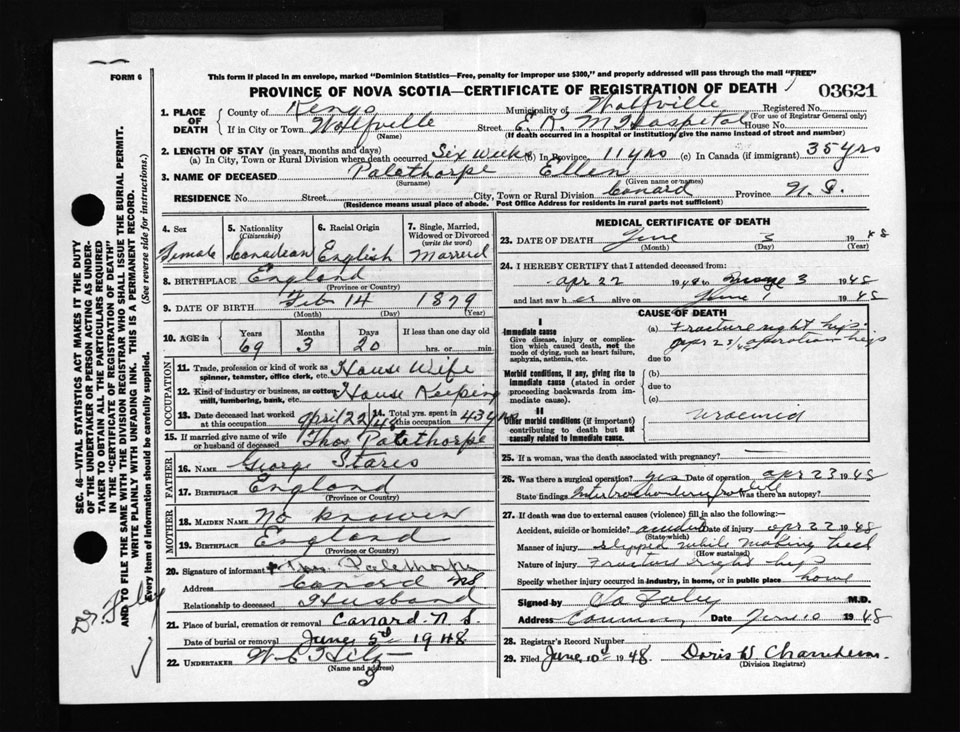 This form if placed in an envelope, marked "Dominion Statistics—Free, penalty for improper use $300," and properly addressed will pass through the mail "FREE"
FORM 6
PROVINCE OF NOVA SCOTIA—CERTIFICATE OF REGISTRATION OF DEATH
03621
1. PLACE OF DEATH County of Kings Municipality of Wolfville Registered No. (For use of Registrar General only)
If in City or Town Wolfville (Name) Street E. K. M Hospital House No.
(If death occurred in a hospital or institution, give the name instead of street and number)
2. LENGTH OF STAY (in years, months and days)
(a) In City, Town or Rural Division where death occurred Six weeks (b) In Province 11 yrs (c) In Canada (if immigrant) 35 yrs
3. NAME OF DECEASED Palethorpe Ellen
(Surname) (Given name or names)
RESIDENCE No. Street City, Town or Rural Division Canard Province N. S.
(Residence means usual place of abode. Post Office Address for residents in rural parts not sufficient)
4. Sex 5. Nationality (Citizenship) 6. Racial Origin 7. Single, Married, Widowed or Divorced (write the word)
Female Canadian English Married
8. BIRTHPLACE England
(Province or Country)
9. DATE OF BIRTH Feb 14 1879
(Month) (Day) (Year)
10. AGE in Years Months Days If less than one day old
69 3 20 hrs. or min.
OCCUPATION
11. Trade, profession or kind of work as spinner, teamster, office clerk, etc. House Wife
12. Kind of industry or business, as cotton mill, lumbering, bank, etc. House Keeping
13. Date deceased last worked at this occupation April 22/48 14. Total yrs. spent in this occupation 43 yrs
15. If married give name of wife or husband of deceased Thos Palethorpe
FATHER
16. NAME George
17. BIRTHPLACE England
(Province or Country)
MOTHER
18. MAIDEN NAME No known
19. BIRTHPLACE England
(Province or Country)
20. Signature of informant Thos. Palethorpe
Address Canard NS
Relationship to deceased Husband
21. Place of burial, cremation or removal Canard N. S.
Date of burial or removal June 5th 1948
22. UNDERTAKER
(Name and address)
MEDICAL CERTIFICATE OF DEATH
23. DATE OF DEATH June 3 1948
(Month) (Day) (Year)
24. I HEREBY CERTIFY that I attended deceased from:
Apr 22 1948 to 3 1948
and last saw her alive on June 1 1948
CAUSE OF DEATH
I
Immediate cause
Give disease, injury or complication which caused death, not the mode of dying, such as heart failure, asphyxia, asthenia, etc.
(a) Fracture right hip.
Apr 23/48 operation hip
due to
Morbid conditions, if any, giving rise to immediate cause (stated in order proceeding backwards from immediate cause).
(b)
due to
(c)
II
Other morbid conditions (if important) contributing to death but not causally related to immediate cause.
25. If a woman, was the death associated with pregnancy? —
26. Was there a surgical operation? yes Date of operation Apr 23 1948
State findings Was there an autopsy?
27. If death was due to external causes (violence) fill in also the following:
Accident, suicide or homicide? Date of injury Apr 22 1948
(State which)
Manner of injury slipped while making bed
(How sustained)
Nature of injury Fracture right hip
Specify whether injury occurred in industry, in home, or in public place home
Signed by M.D.
Address Date June 10 1948
28. Registrar's Record Number
29. Filed June 10th 1948 Doris W.
(Division Registrar)
SEC. 46—VITAL STATISTICS ACT MAKES IT THE DUTY
OF THE UNDERTAKER OR PERSON ACTING AS UNDERTAKER TO OBTAIN ALL THE PARTICULARS REQUIRED
IN THE "CERTIFICATE OF REGISTRATION OF DEATH"
AND TO FILE THE SAME WITH THE DIVISION REGISTRAR WHO SHALL ISSUE THE BURIAL PERMIT.
WRITE PLAINLY WITH UNFADING INK. THIS IS A PERMANENT RECORD.
Every item of information should be carefully supplied. (See reverse side for instructions.)
Dr. Foley